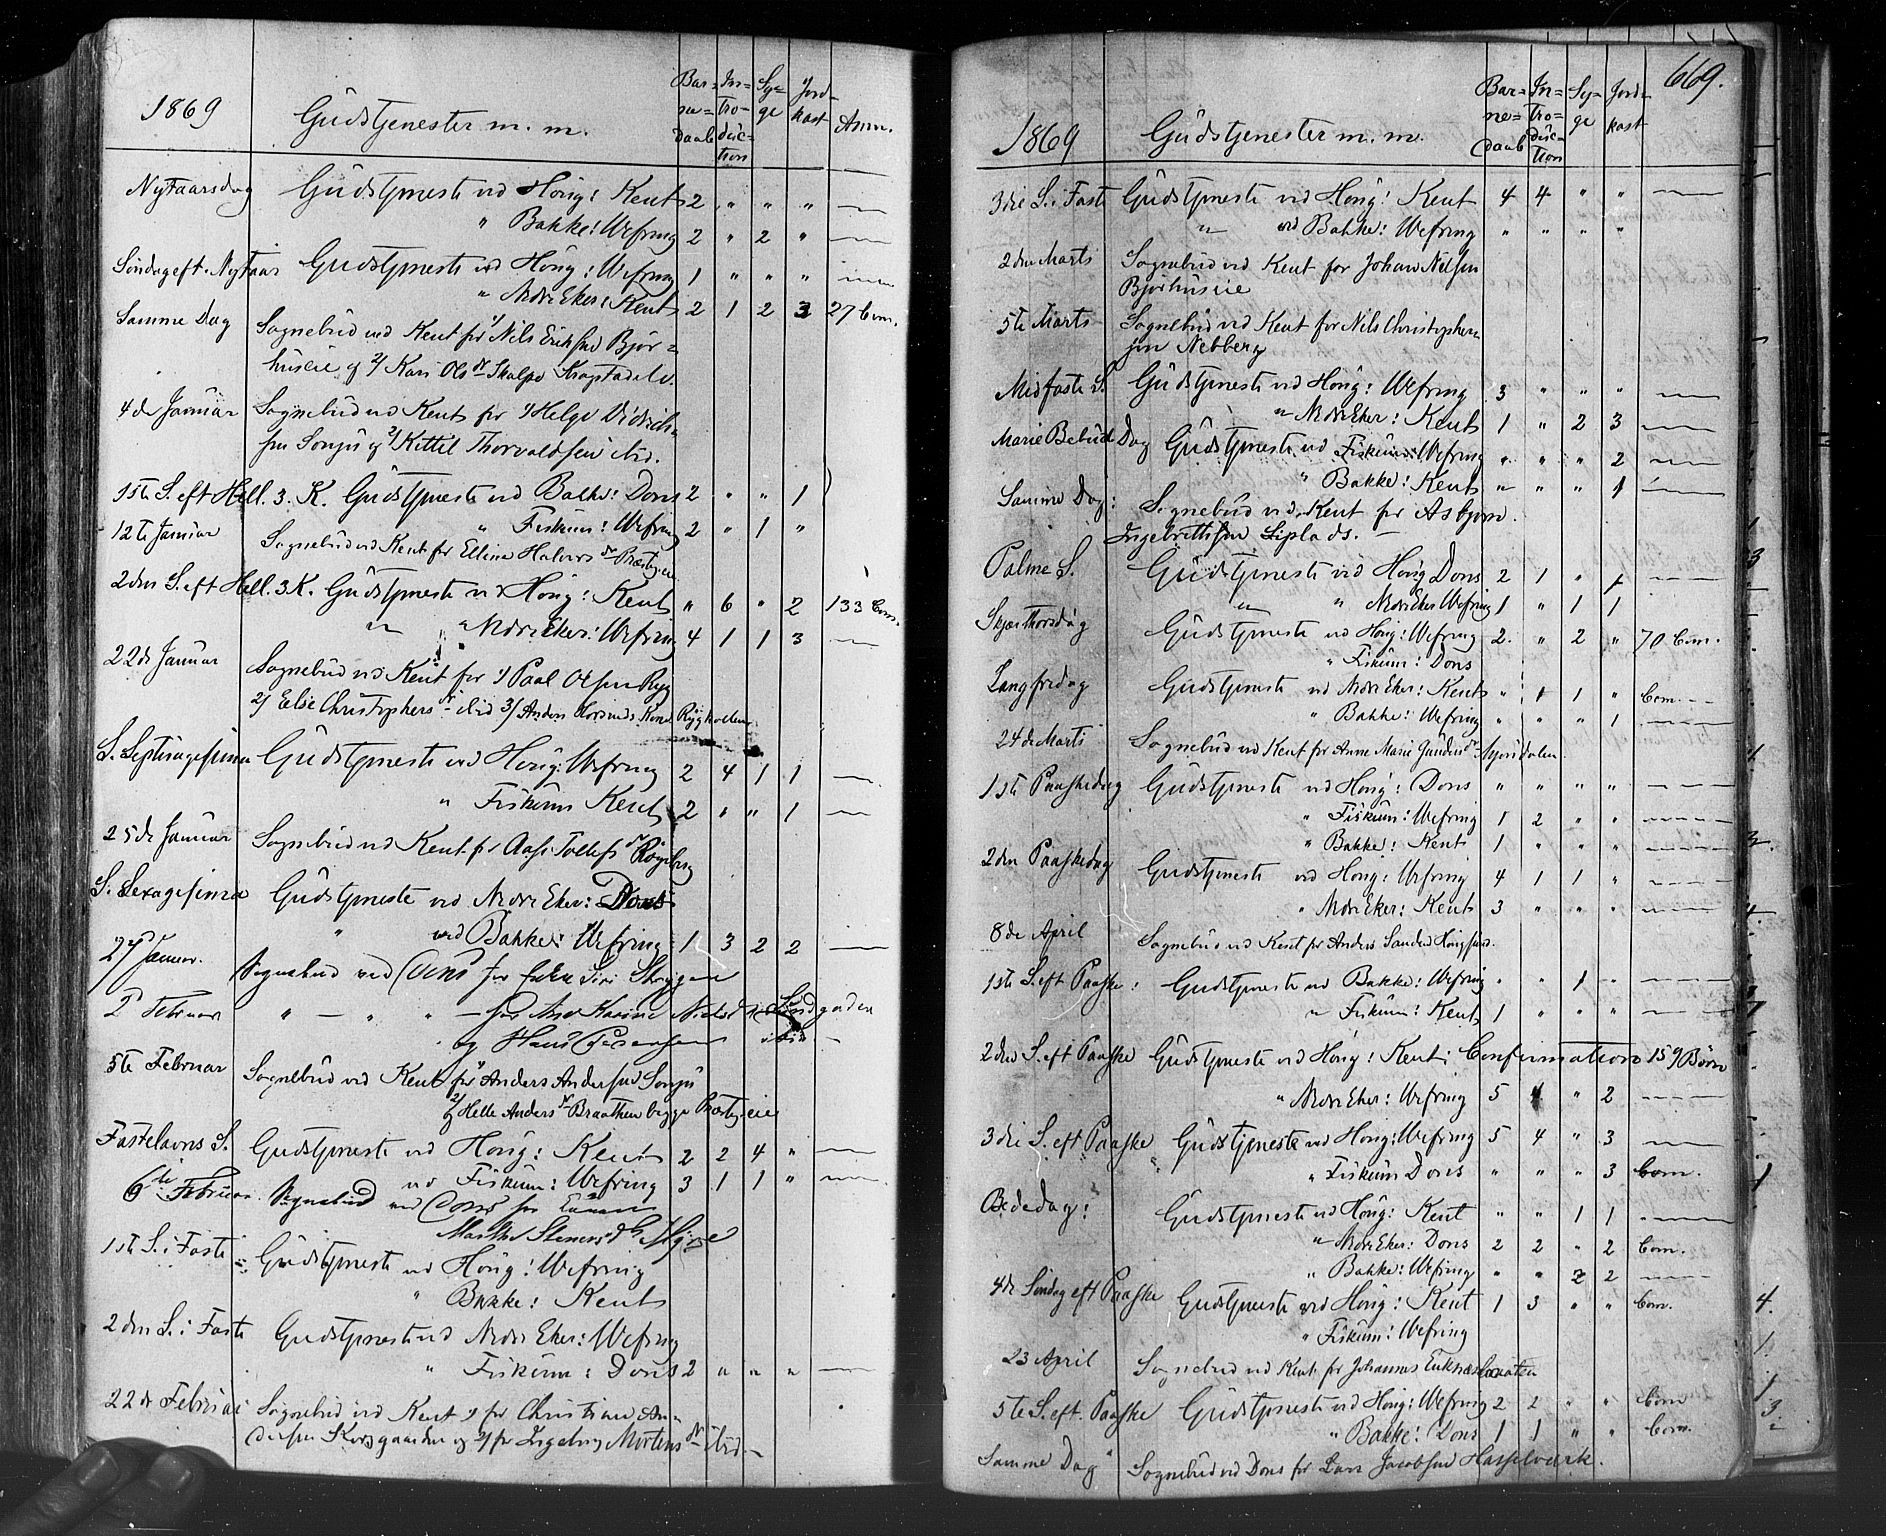 1869 Gudstjenester m. m. Bar= In= Sy= Jord-
ne= tro= ge kast Anm.
daab duc=
tion
Nytaarsdag Gudstjeneste ved Houg: Kent 2 " " " —
" Bakke: Wefring 2 " 2 " —
Søndag eft. Nytaar Gudstjeneste ved Houg: Wefring 1 " " " —
" Nedre Eker: Kent 2 1 2 3 27 Com.
Samme Dag Sognebud ved Kent for 1/ Nils Eriksen Bjør=
huseie og 2/ Kari Olsdr Skalpe Krogstadelv.
4de Januar Sognebud ved Kent for 1/ Helge Didrich=
sen Sonju og 2/ Kittil Thorvaldsen ibid.
1ste S. eft Hell. 3. K. Gudstjeneste ved Bakke: Dons 2 " " 1
" Fiskum: Wefring 2 " 1 "
12te Januar Sognebud ved Kent for Elline Halvorsdr Præstegeie
2den S. eft Hell. 3 K. Gudstjeneste ved Houg: Kent " 6 " 2 133 Com.
" " Nedre Eker: Wefring 4 1 1 3 —
22de Januar Sognebud ved Kent for 1/ Paal Olsen Ryg
2/ Else Christophersdr ibid 3/ Anders Kone Rygkollen
S. Septuagesima Gudstjeneste ved Houg: Wefring 2 4 1 1 —
" Fiskum Kent 2 " " 1 —
25de Januar Sognebud ved Kent for Aase Tollefsdr
S. Sexagesima Gudstjeneste ved Nedre Eker: Dons
" ved Bakke: Wefring 1 3 2 2 —
27 Januar. Sognebud ved Dons for Enke Siri
2 Februar " — " " — for Ane Karine
og Hans Pedersen ibid —
5te Februar Sognebud ved Kent for 1/ Anders Andersen Sonju
2/ Helle Andersdr Braathen begge Præstegeie
Fastelavns S. Gudstjeneste ved Houg: Kent 2 2 4 " —
ved Fiskum: Wefring 3 1 1 " —
6te Februar. Sognebud ved Dons for
Marthe
1ste S. i Faste Gudstjeneste ved Houg: Wefring
" Bakke: Kent
2den S. i Faste Gudstjeneste ved Nedre Eker: Wefring
" Fiskum: Dons 2 " " " —
22de Februar Sognebud ved Kent 1/ for Christiane An=
dersen Korsgaarden og 2/ for Ingeborg Mortensdr ibid. —
669.
1869 Gudstjenester m. m. Bar= In= Sy= Jord-
ne= tro= ge kast
daab duc=
tion
3die S. i Faste Gudstjeneste ved Houg: Kent 4 4 " " —
" ved Bakke: Wefring " " " "
2den Marts Sognebud ved Kent for Johan Nilsen
Bjørhuseie
5te Marts Sognebud ved Kent for Nils Christopher=
sen Nebberg
Midfaste S. Gudstjeneste ved Houg: Wefring 3 " " " —
" Nedre Eker: Kent 1 " 2 3 —
Marie Bebud Dag Gudstjeneste ved Fiskum: Wefring " " " 2 —
" Bakke: Kent " " " 1 —
Samme Dag: Sognebud ved Kent for Asbjørn
Ingebrethsen —
Palme S. Gudstjeneste ved Houg Dons 2 1 " 1 —
" " Nedre Eker Wefring 1 " 1 1
Skjærthorsdag Gudstjeneste ved Houg: Wefring 2. " 2 " 70 Com.
" Fiskum: Dons
Langfredag Gudstjeneste ved Nedre Eker: Kent " 1 1 " Com. —
" Bakke: Wefring " " " 1 —
24de Marts Sognebud ved Kent for Anne Marie Gundersdr
1ste Paaskedag Gudstjeneste ved Houg: Dons " " " " —
" Fiskum: Wefring 1 2 " " —
" Bakke: Kent 1 " " " —
2den Paaskedag Gudstjeneste ved Houg: Wefring 4 1 1 " —
" Nedre Eker: Kent 3 " " " —
8de April Sognebud ved Kent for Anders
1ste S. eft Paaske: Gudstjeneste ved Bakke: Wefring " " 1 " —
" Fiskum: Kent 1 " " " —
2den S. eft Paaske Gudstjeneste ved Houg: Kent: Confirmation 159 Børn
" Nedre Eker: Wefring 5 4 " 2 —
3die S. eft Paaske Gudstjeneste ved Houg: Wefring 5 4 " 3 —
" Fiskum Dons " " " 3 Com.
Bededag: Gudstjeneste ved Houg: Kent " " 1 1 —
" Nedre Eker: Dons 2 2 " 2 Com.
" Bakke: Wefring " " 2 2 —
4de Søndag eft Paaske Gudstjeneste ved Houg: Kent 1 3 " " Com.
" Fiskum: Wefring
23 April Sognebud ved Kent for Johannes
5te S. eft. Paaske Gudstjeneste ved Houg: Wefring 2 2 " " Com
" Bakke: Dons 1 1 " " Com.
Samme Dag Sognebud ved Dons for Lars Jacobsen Hasselværk.